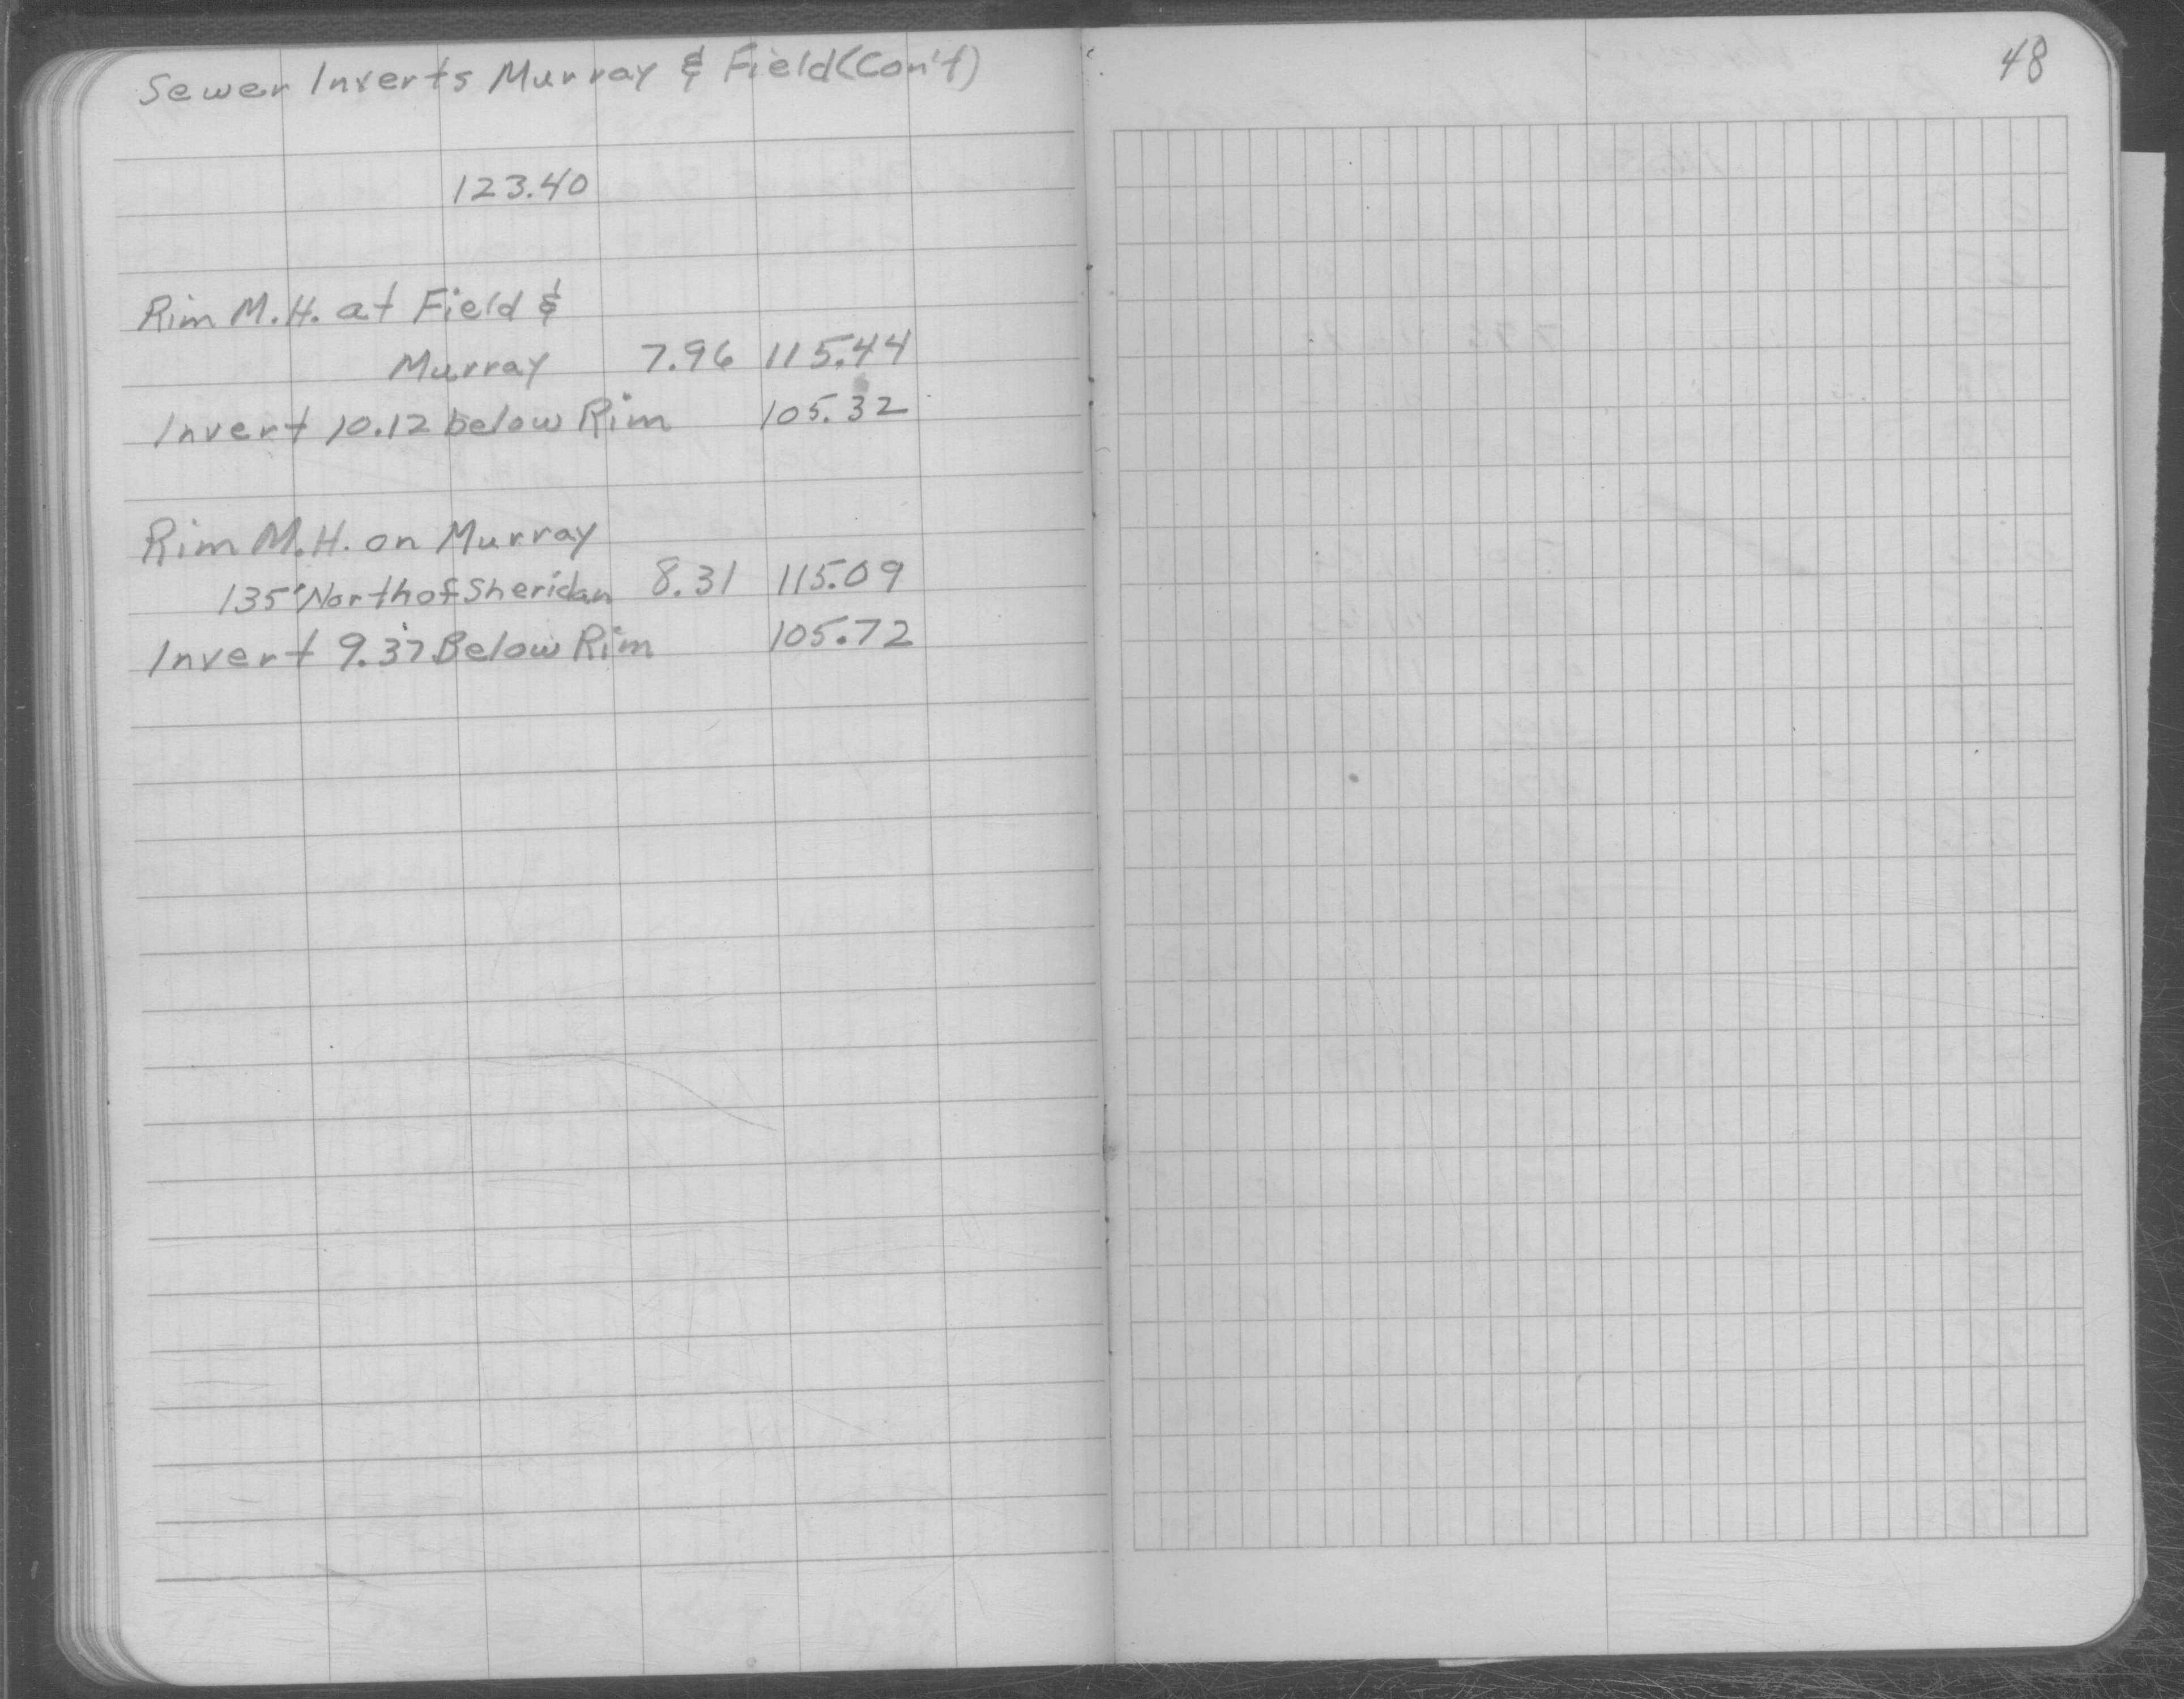 Sewer Inverts Murray & Field (Con't)
48
123.40
Rim M.H. at Field &
Murray 7.96 115.44
Invert 10.12 below Rim 105.32
Rim M.H. on Murray
135' North of Sheridan 8.31 115.09
Invert 9.37 Below Rim 105.72